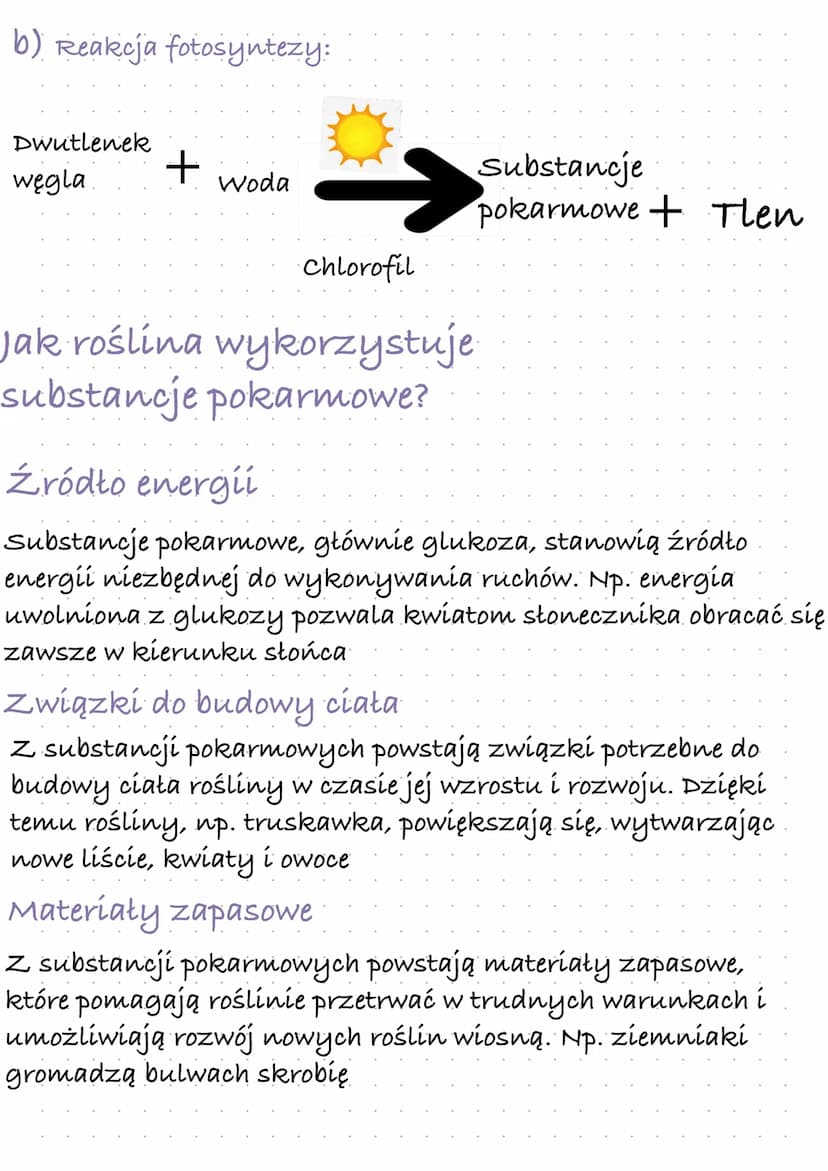 b) Reakcja fotosyntezy:
Dwutlenek
węgla
+
Woda
Substancje
pokarmowe + Tlen
Chlorofil
Jak roślina wykorzystuje
substancje pokarmowe?
Źródło energii
Substancje pokarmowe, głównie glukoza, stanowią źródło
energii niezbędnej do wykonywania ruchów. Np. energia
uwolniona z glukozy pozwala kwiatom słonecznika obracać się
zawsze w kierunku słońca
Związki do budowy ciała
Z substancji pokarmowych powstają związki potrzebne do
budowy ciała rośliny w czasie jej wzrostu i rozwoju. Dzięki
temu rośliny, np. truskawka, powiększają się, wytwarzając
nowe liście, kwiaty i owoce
Materiały zapasowe
Z substancji pokarmowych powstają materiały zapasowe,
które pomagają roślinie przetrwać w trudnych warunkach i
umożliwiają rozwój nowych roślin wiosną. Np. ziemniaki
gromadzą bulwach skrobię